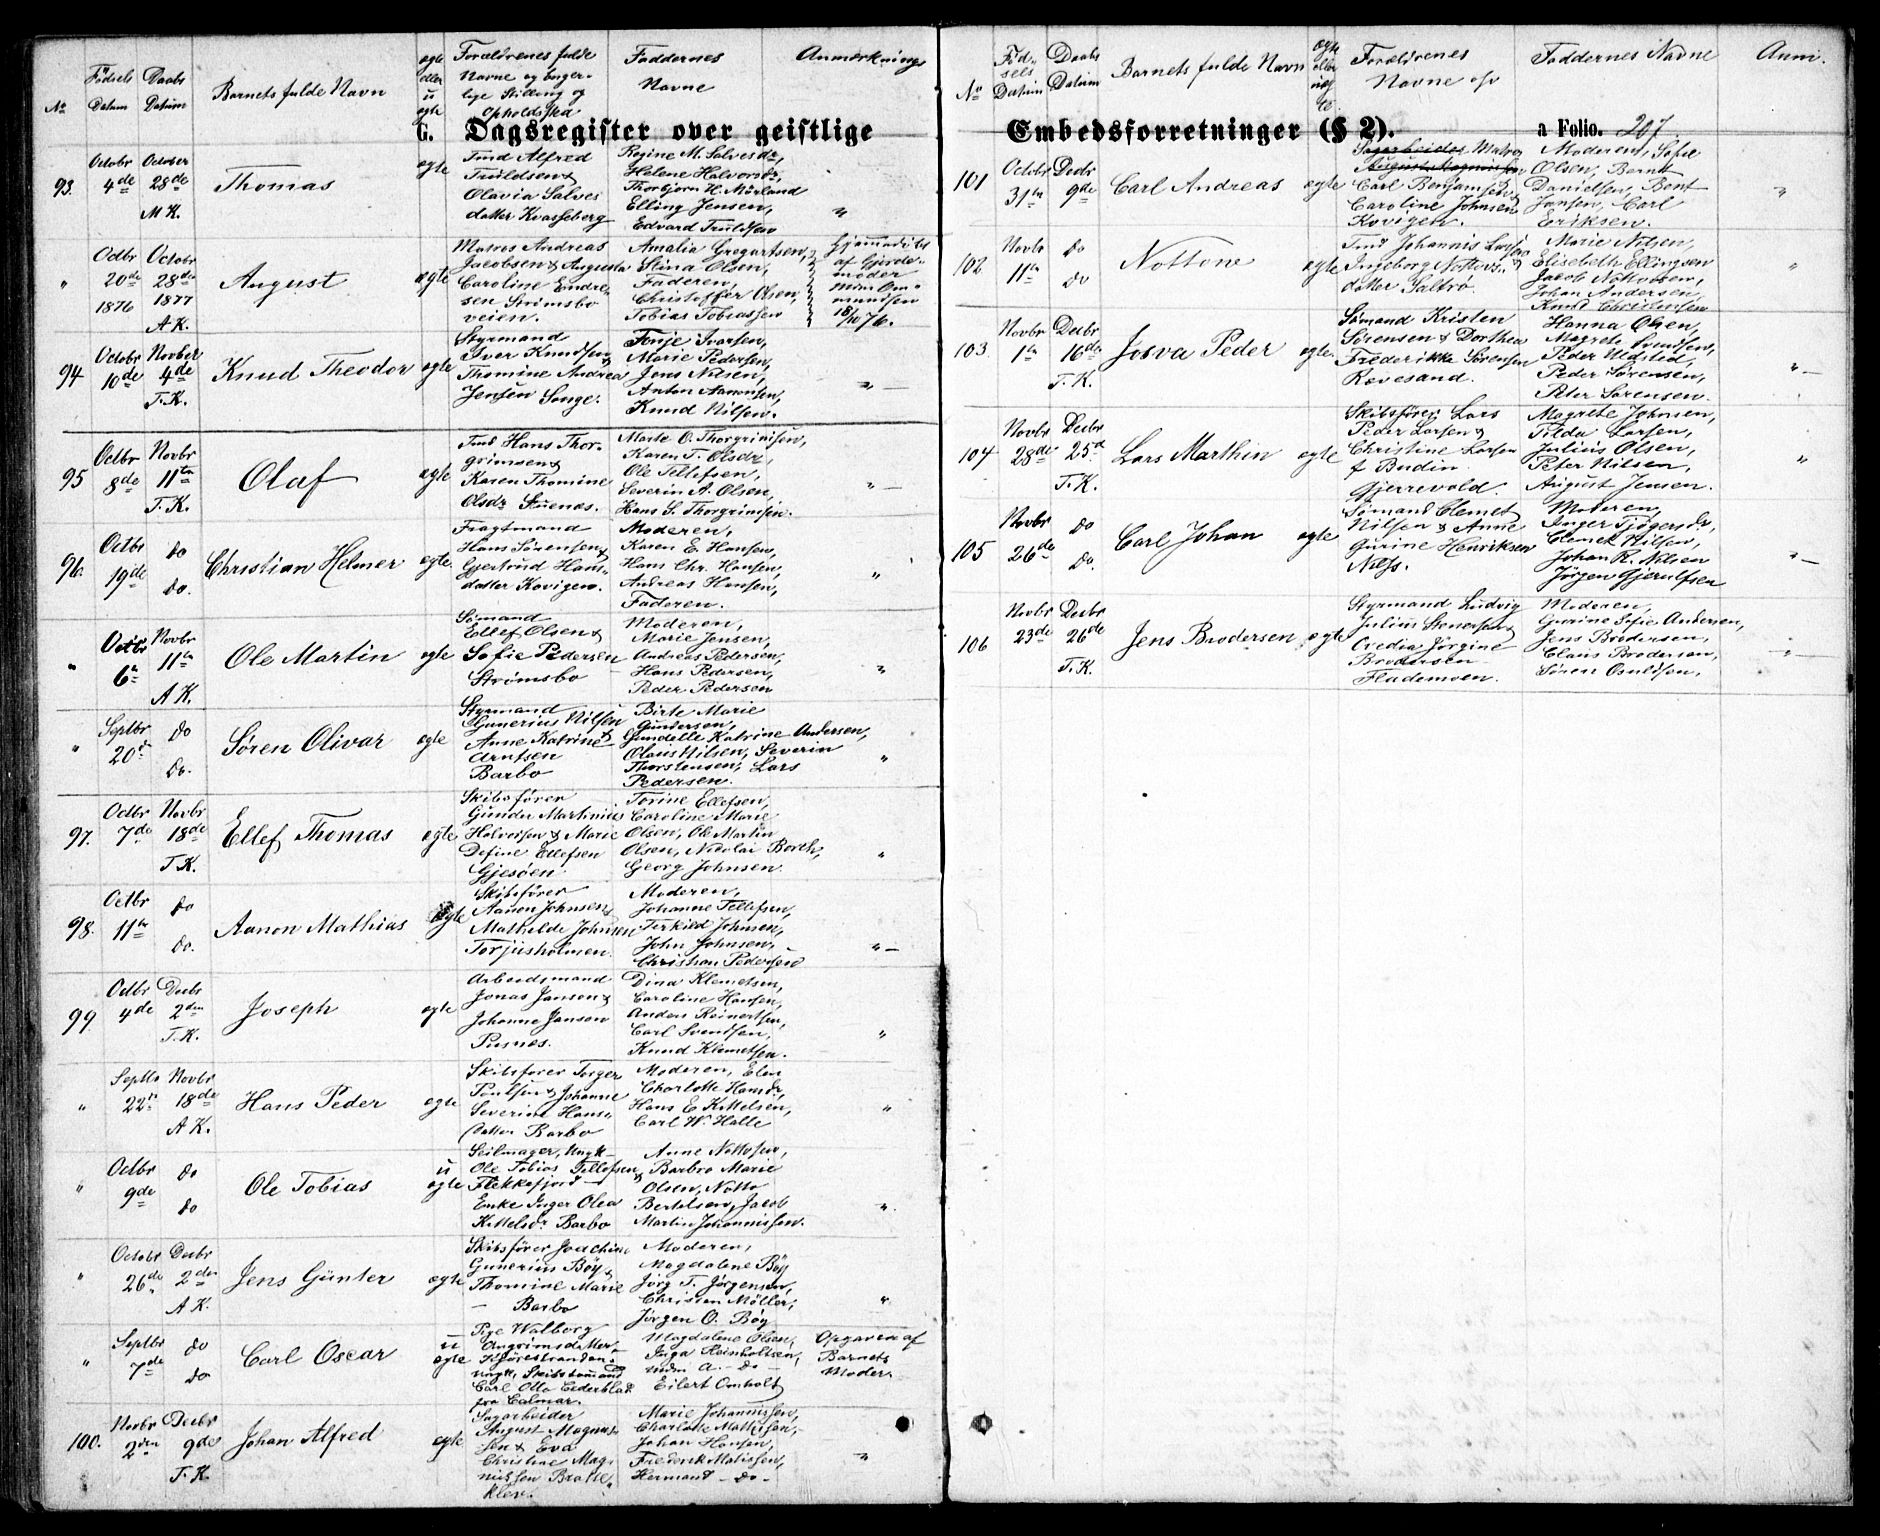 No
Födsels Datum
Daabs Datum
Barnets fulde Navn
egte eller uegte
Forældrenes fulde
Navne og borger-
lige Stilling og
Opholdsska
Faddernes
Navne
Anmærkning
G. Dagsregister over geistlige
93.
Octobr
4de
October
28de
M K.
Thomas
egte
Tmd Alfred
Truldsen &
Olavia Salves
datter Kvasseberg
Regine M. Salvesdr,
Helene Halvorsdr,
Thorbjorn H. Mörland
Elling Jensen,
Edvard Truldsen
"
"
Octbr
20de
1876
Octobr
28de
1877
A K.
August
egte
Matros Andreas
Jacobsen & Augusta
Caroline Endre-
sen Strømsbo
veien.
Amalia Gregertsen,
Stina Olsen,
Faderen,
Christoffer Olsen,
Tobias Tobiassen
Hjemmedøbt
af Gjorde-
moder
mundsen
18/10 76.
94
Octobr
10de
Novber
4de
T. K.
Knud Theodor
egte
Styrmand
Iver Knudsen &
Thomine Andrea
Jensen Songe.
Tonje Ivarsen,
Marie Pedersen,
Jens Nilsen,
Anton Aanonsen,
Knud Nilsen.
"
95
Octbr
8de
Novbr
11te
T. K.
Olaf
egte
Tmd Hans Thor-
grimsen &
Karen Thomine
Olsdr Stuenæs.
Marte O. Thorgrimsen,
Karen T. Olsdr,
Ole Tellefsen,
Severin A. Olsen,
Hans S. Thorgrimsen.
"
96.
Octbr
19de
do
do.
Christian Helmer
egte
Fragtmand
Hans Sørensen &
Gjertrud Hans-
datter Kovigen.
Moderen,
Karen E. Hansen,
Hans Chr. Hansen,
Andreas Hansen,
Faderen.
"
"
Octbr
6te
Novbr
11te
A K.
Ole Martin
egte
Sömand
Ellef Olsen &
Sofie Pedersen
Strømsbo
Moderen,
Marie Jensen,
Andreas Pedersen,
Hans Pedersen,
Peder Pedersen
"
"
Septbr
20de
do
do.
Søren Olivar
egte
Styrmand
Gunerius Nilsen
Anne Katrine &
Arntsen
Barbo
Birte Marie
Guntersen,
Gundelle Katrine Andersen,
Olaus Nilsen, Severin
Thorstensen, Lars
Pedersen.
"
97.
Octbr
7de
Novbr
18de
T K.
Ellef Thomas
egte
Skibsfører
Gunder Martinius
Halvorsen & Marie
Define Ellefsen
Gjesøen
Torine Ellefsen,
Caroline Marie
Olsen, Ole Martin
Olsen, Nicolai Borth,
Georg Johnsen
"
98.
Octbr
11te
do
do.
Aanon Mathias
egte
Skibsfører
Aanon Johnsen &
Mathilde Johnsen
Torjusholmen.
Moderen,
Johanne Tellefsen,
Terkild Johnsen,
John Johnsen,
Christian Pedersen
"
99
Octbr
4de
Decbr
2den
T. K.
Joseph
egte
Arbeidsmand
Jonas Jansen &
Johanne Jansen
Pusnæs.
Dina Klemetsen,
Caroline Hansen,
Anders Reinertsen,
Carl Svendsen,
Knud Klemetsen.
"
"
Septbr
22n
Novbr
18de
A K.
Hans Peder
egte
Skibsfører Torger
Poulsen & Johanne
Severine Hans-
datter Barbo
Moderen, Elen
Charlotte Hansdr,
Hans E. Kittelsen,
Carl W. Halle
"
"
Octbr
9de
do
do
Ole Tobias
u
egte
Seilmager, Ungk-
Ole Tobias Tellefsen
Flekkefjord &
Enke Inger Olea
Kittelsdr. Barbo
Anne Nottosen,
Barbro Marie
Olsen, Notto
Bertelsen, Jacob
Martin Johannissen.
"
"
Octobr
26de
Decbr
2den
A K.
Jens Günter
egte
Skibsfører Joachim
Gunerius Böy &
Thomine Marie
— Barbo
Moderen,
Magdalene Böy
Jörg T. Jörgensen,
Christen Möller,
Jörgen O. Böy
"
"
Septbr
7de
do
do
Carl Oscar
u
egte
Pige Walborg
Ungk. Skibstømmand
Carl Otto Cederblad
fra Calmar.
Magdalene Olsen,
Inga Reinholtsen,
A. — do —
Eilert Omholt
Opgaven af
Barnets
Moder.
100.
Novbr
2den
Decbr
9de
T. K.
Johan Alfred
egte
Sagarbeider
August Magnus-
sen & Eva
Christine Mag-
nussen Bratte-
klev.
Marie Johannissen,
Charlotte Mathisen,
Johan Hansen,
Frederik Matissen,
Hermand — do —
"
No
Föd-
sels
Datum
Daabs
Datum
Barnets fulde Navn
egte eller uegte
Forældrenes
Navne osv
Faddernes Navne
Anm.
Embedsforretninger (§ 2).
a Folio. 207.
101
Octobr
31te
Decbr
9de
Carl Andreas
egte
Sagarbeider Matros
August Magnussen
Carl Benjamsen &
Caroline Johnsen
Kovigen.
Moderen, Sofie
Olsen, Bernt
Danielsen, Bent
Jansen, Carl
Eriksen.
"
102
Novbr
11te
do
do
Nottone
egte
Tmd Johannis Larssen
Ingeborg Nottos- &
datter Saltrø.
Marie Nilsen,
Elisebeth Ellingsen
Jacob Nottosen,
Johan Andersen,
Knud Christensen
"
103.
Novbr
1te
Decbr
16de
T. K.
Josva Peder
egte
Sømand Kristen
Sørensen & Dorthea
Frederikke Sørensen
Rævesand.
Hanna Olsen,
Magrete Knudsen,
Peder Udsted,
Peder Sørensen,
Peter Sørensen.
"
104
Novbr
28de
Decbr
25d
T. K.
Lars Marthin
egte
Skibsfører Lars
Peder Larsen &
Christine Larsen
f Budin
Gjerrevold.
Magrete Johnsen,
Tilda Larsen,
Julius Olsen,
Peter Nilsen,
August Jensen.
"
105
Novbr
26de
do
do.
Carl Johan
egte
Sømand Clemet
Nilsen & Anne
Gurine Henriksen
Næs.
Moderen,
Inger Tjögersdr,
Clemet Nilsen,
Johan R. Nilsen
Jörgen Gjerulfsen
"
106
Novbr
23de
Decbr
26de
T. K.
Jens Brodersen
egte
Styrmand Ludvig
Julius Stenersen &
Ovedia Jörgine
Brodersen
Flademoen.
Moderen,
Gurine Sofie Andersen,
Jens Brodersen,
Claus Brodersen,
Søren Osuldsen,
"